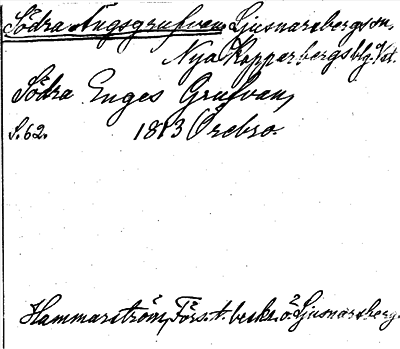 Södra Ängsgrufvan, Ljusnarsbergs sn,
Nya Kopparbergs blg. Vst.
Södra Enges Grufvan,
S. 62. 1813 Örebro.
Hammarström, Förs. t. beskr. ö. Ljusnarsberg.